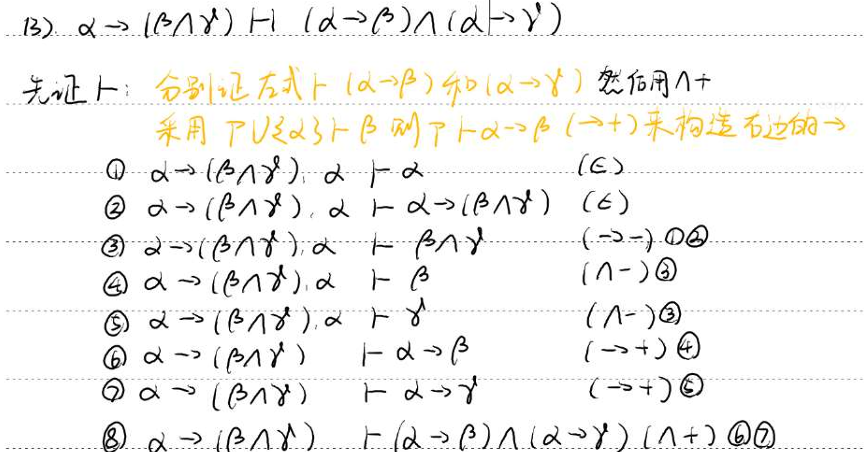 13). α→(β∧γ) ⊢⊣ (α→β)∧(α→γ)
先证⊢: 分别证左式⊢(α→β)和(α→γ) 然后用∧+
采用 Γ∪{α}⊢β 则 Γ⊢α→β (→+)来构造右边的→
① α→(β∧γ), α ⊢ α (∈)
② α→(β∧γ), α ⊢ α→(β∧γ) (∈)
③ α→(β∧γ), α ⊢ β∧γ (→-)①②
④ α→(β∧γ), α ⊢ β (∧-)③
⑤ α→(β∧γ), α ⊢ γ (∧-)③
⑥ α→(β∧γ) ⊢ α→β (→+)④
⑦ α→(β∧γ) ⊢ α→γ (→+)⑤
⑧ α→(β∧γ) ⊢ (α→β)∧(α→γ) (∧+)⑥⑦